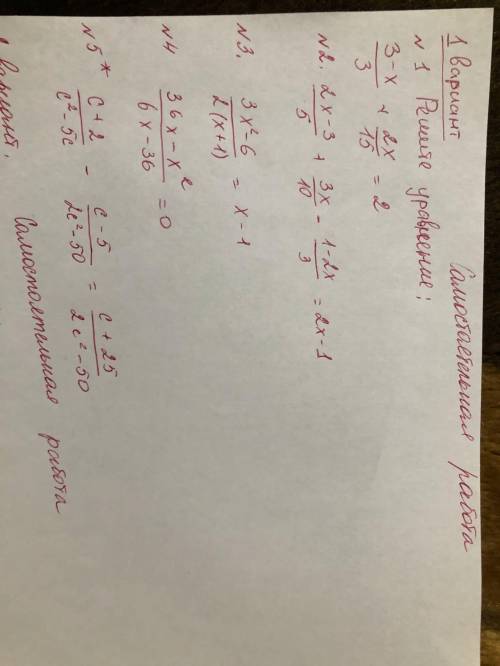 Самостоятельная работа
1 вариант
N 1 Решите уравнение:
(3-x)/3 + 2x/15 = 2
N2. (2x-3)/5 + 3x/10 - (1-2x)/3 = 2x-1
N3. (3x²-6)/(2(x+1)) = x-1
N4 (36x-x²)/(6x-36) = 0
N5* (c+2)/(c²-5c) - (c-5)/(2c²-50) = (c+25)/(2c²-50)
Самостоятельная работа
вариант.